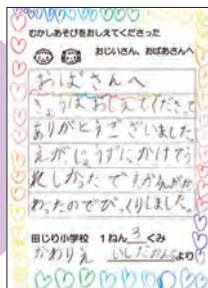 むかしあそびをおしえてくださった
おじいさん、おばあさんへ
おばさんへ
きょうはおしえてくださって
ありがとうございました。
えがじょうずにかけてう
れしかったです。がらがか
わったのでびっくりしました。
田じり小学校 1ねん3くみ
かわりえ いしだかんな より